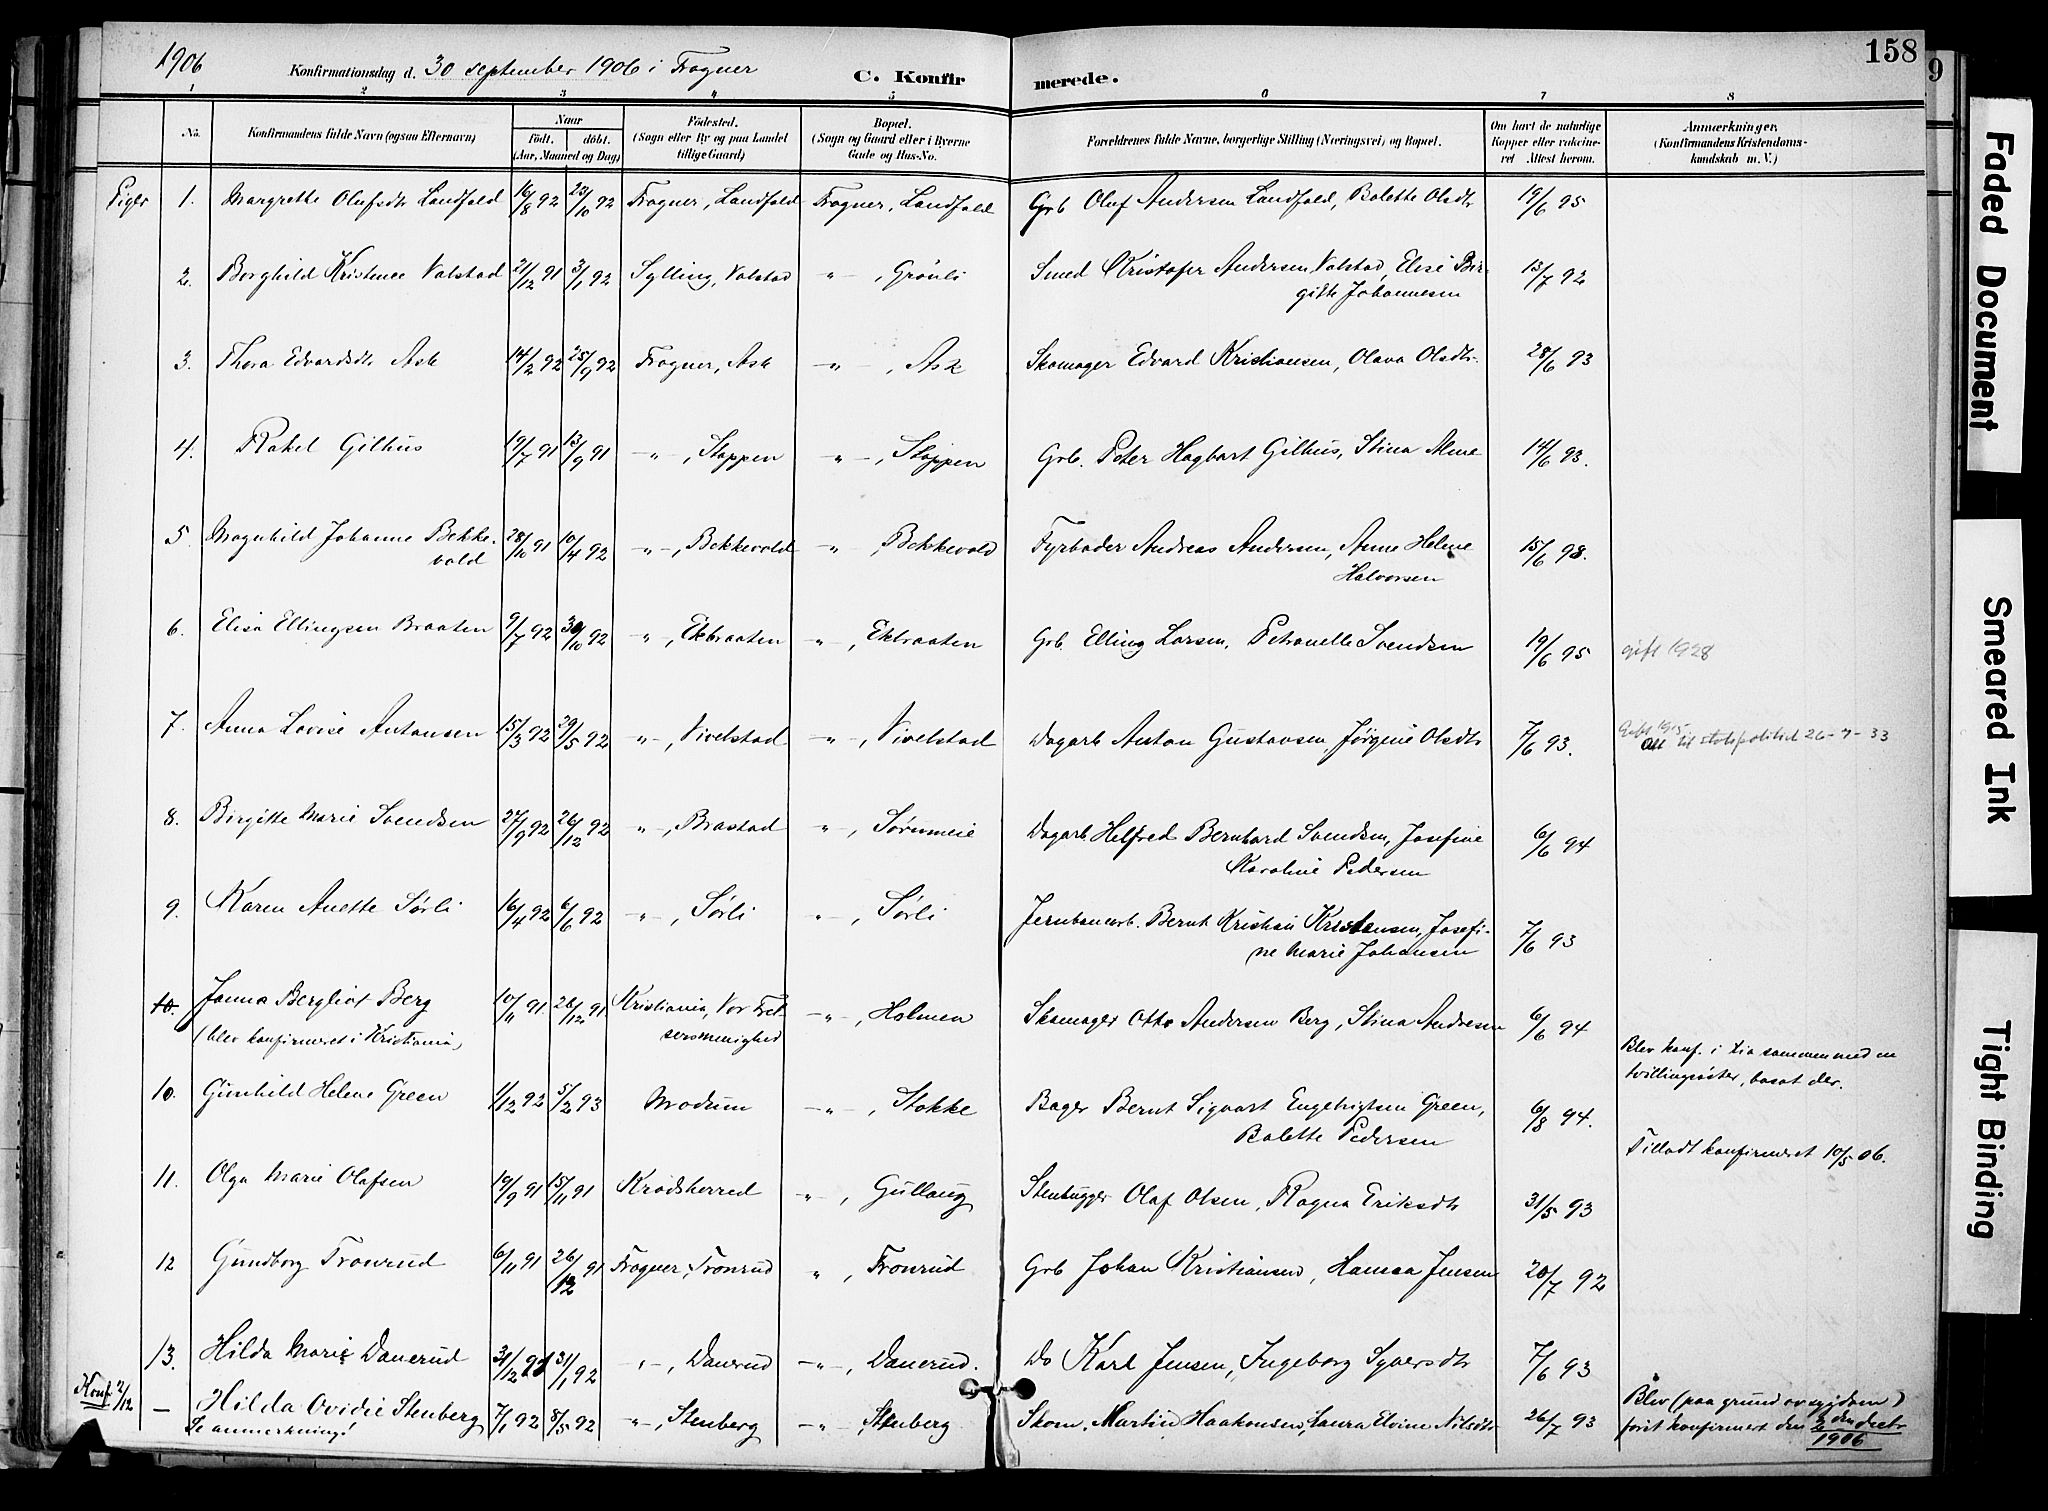 1906 Konfirmationsdag d. 30 september 1906 i Frogner C. Konfir merede. 158
9
1 2 3 4 5 6 7 8
No. Konfirmandens fulde Navn (ogsaa Efternavn) Naar født. døbt. (Aar, Maaned og Dag) Fødested. (Sogn eller By og paa Landet tillige Gaard) Bopæl. (Sogn og Gaard eller i Byerne Gade og Hus-No. Forældrenes fulde Navne, borgerlige Stilling (Næringsvei) og Bopæl. Om havt de naturlige Kopper eller vakcineret Attest herom. Anmærkninger. (Konfirmandens Kristendomskundskab m. V.)
Piger 1. Margrethe Olufsdtr Landfald 16/8 92 23/10 92 Frogner, Landfald Frogner, Landfald Grb Oluf Andersen Landfald, Bolette Olsdtr 19/6 95
2. Borghild Kristence Valstad 21/12 91 3/1 92 Sylling, Valstad -"-, Grönli Smed Kristofer Andersen Valstad, Elise Bir-
gitte Johannesen 13/7 92
3. Thora Edvardsdtr Ask 14/2 92 25/9 92 Frogner, Ask -"-, Ask Skomager Edvard Kristiansen, Olava Olsdtr. 28/6 93
4. Rakel Gilhus 19/7 91 13/9 91 -"-, Stoppen -"-, Stoppen Grb. Peter Hagbart Gilhus, Stina Alme 14/6 93.
5. Magnhild Johanne Bekke-
vold 28/10 91 10/4 92 -"-, Bekkevold -"-, Bekkevold Fyrbøder Andreas Andersen, Anne Helene
Halvorsen 15/6 98.
6. Elisa Ellingsen Braaten 9/7 92 30/10 92 -"-, Ekbraaten -"-, Ekbraaten Grb. Elling Larsen, Petronelle Svendsen 19/6 95 gift 1928
7. Anna Lovise Antonsen 15/3 92 29/5 92 -"-, Vivelstad -"-, Vivelstad Dagarb Anton Gustavsen, Jørgine Olsdtr 7/6 93. Gift 1915
Att til statspolitiet 26-7-33
8. Birgitte Marie Svendsen 27/9 92 26/12 92 -"-, Brastad -"-, Sørumeie Dagarb Helfred Bernhard Svendsen, Josefine
Karoline Pedersen 6/6 94
9. Karen Anette Sørli 16/4 92 6/6 92 -"-, Sørli -"-, Sørli Jernbanearb. Bernt Kristian Kristensen, Josefi-
ne Marie Johansen 7/6 93
10. Janna Bergliot Berg 10/11 91 26/12 91 Kristiania, Vor Frel- -"-, Holmen Skomager Otto Andersen Berg, Stina Andresen 6/6 94
(blev konfirmeret i Kristiania) sersmenighed Blev konf. i Kria sammen med en
tvillingsøster, bosat der.
10. Gunhild Helene Green 1/12 92 5/2 93 Modum -"-, Stokke Bager Bernt Sigvart Engebrigtsen Green,
Bolette Pedersen 6/8 94. Tilladt konfirmeret 10/5 06.
11. Olga Marie Olafsen 19/9 91 15/11 91 Krødsherred -"-, Gullaug Stenhugger Olaf Olsen, Ragna Eriksdtr 31/5 93
12 Gundborg Tronrud 6/11 91 26/12 91 Frogner, Tronrud ", Tronrud Grb Johan Kristiansen, Hanna Jensen 20/7 92
13. Hilda Marie Danerud 31/12 91 31/1 92 -"-, Danerud -"-, Danerud. Do Karl Jensen, Ingeborg Syversdtr 7/6 93
Konf. 2/12 – Hilda Ovidie Stenberg 7/1 92 8/5 92 -"-, Stenberg -"-, Stenberg Skom. Martin Haakonsen, Laura Elvine Nilsdtr 26/7 93 Blev (paa grund av sygdom)
Se anmerkning! først konfirmert den 2den decbr
1906
Faded Document
Smeared Ink
Tight Binding